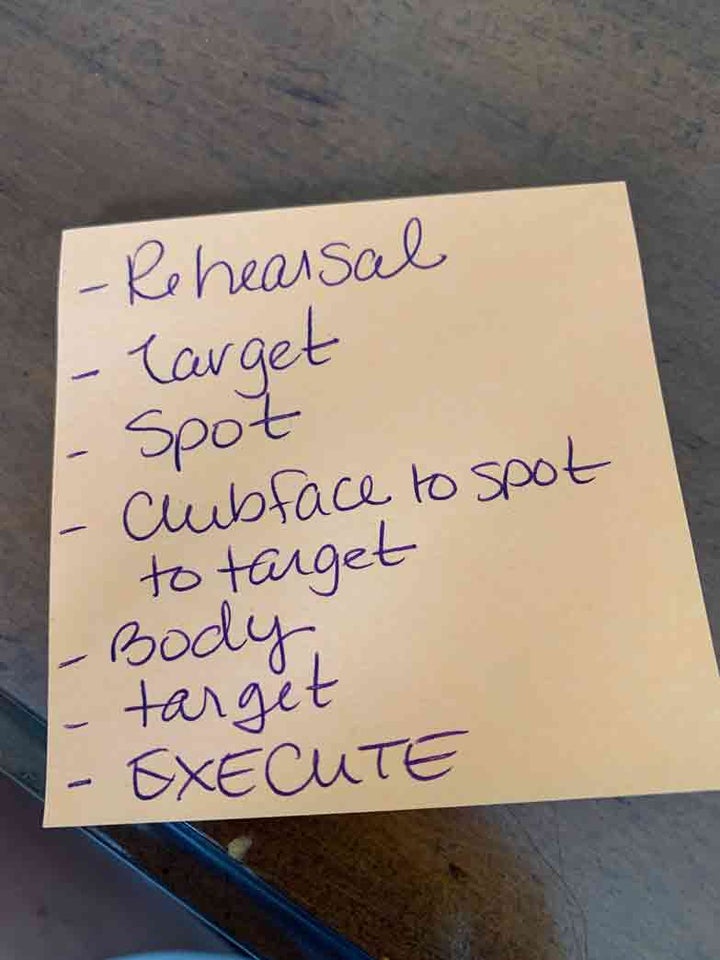 - Rehearsal
- Target
- Spot
- Clubface to spot
to target
- Body
- target
- EXECUTE